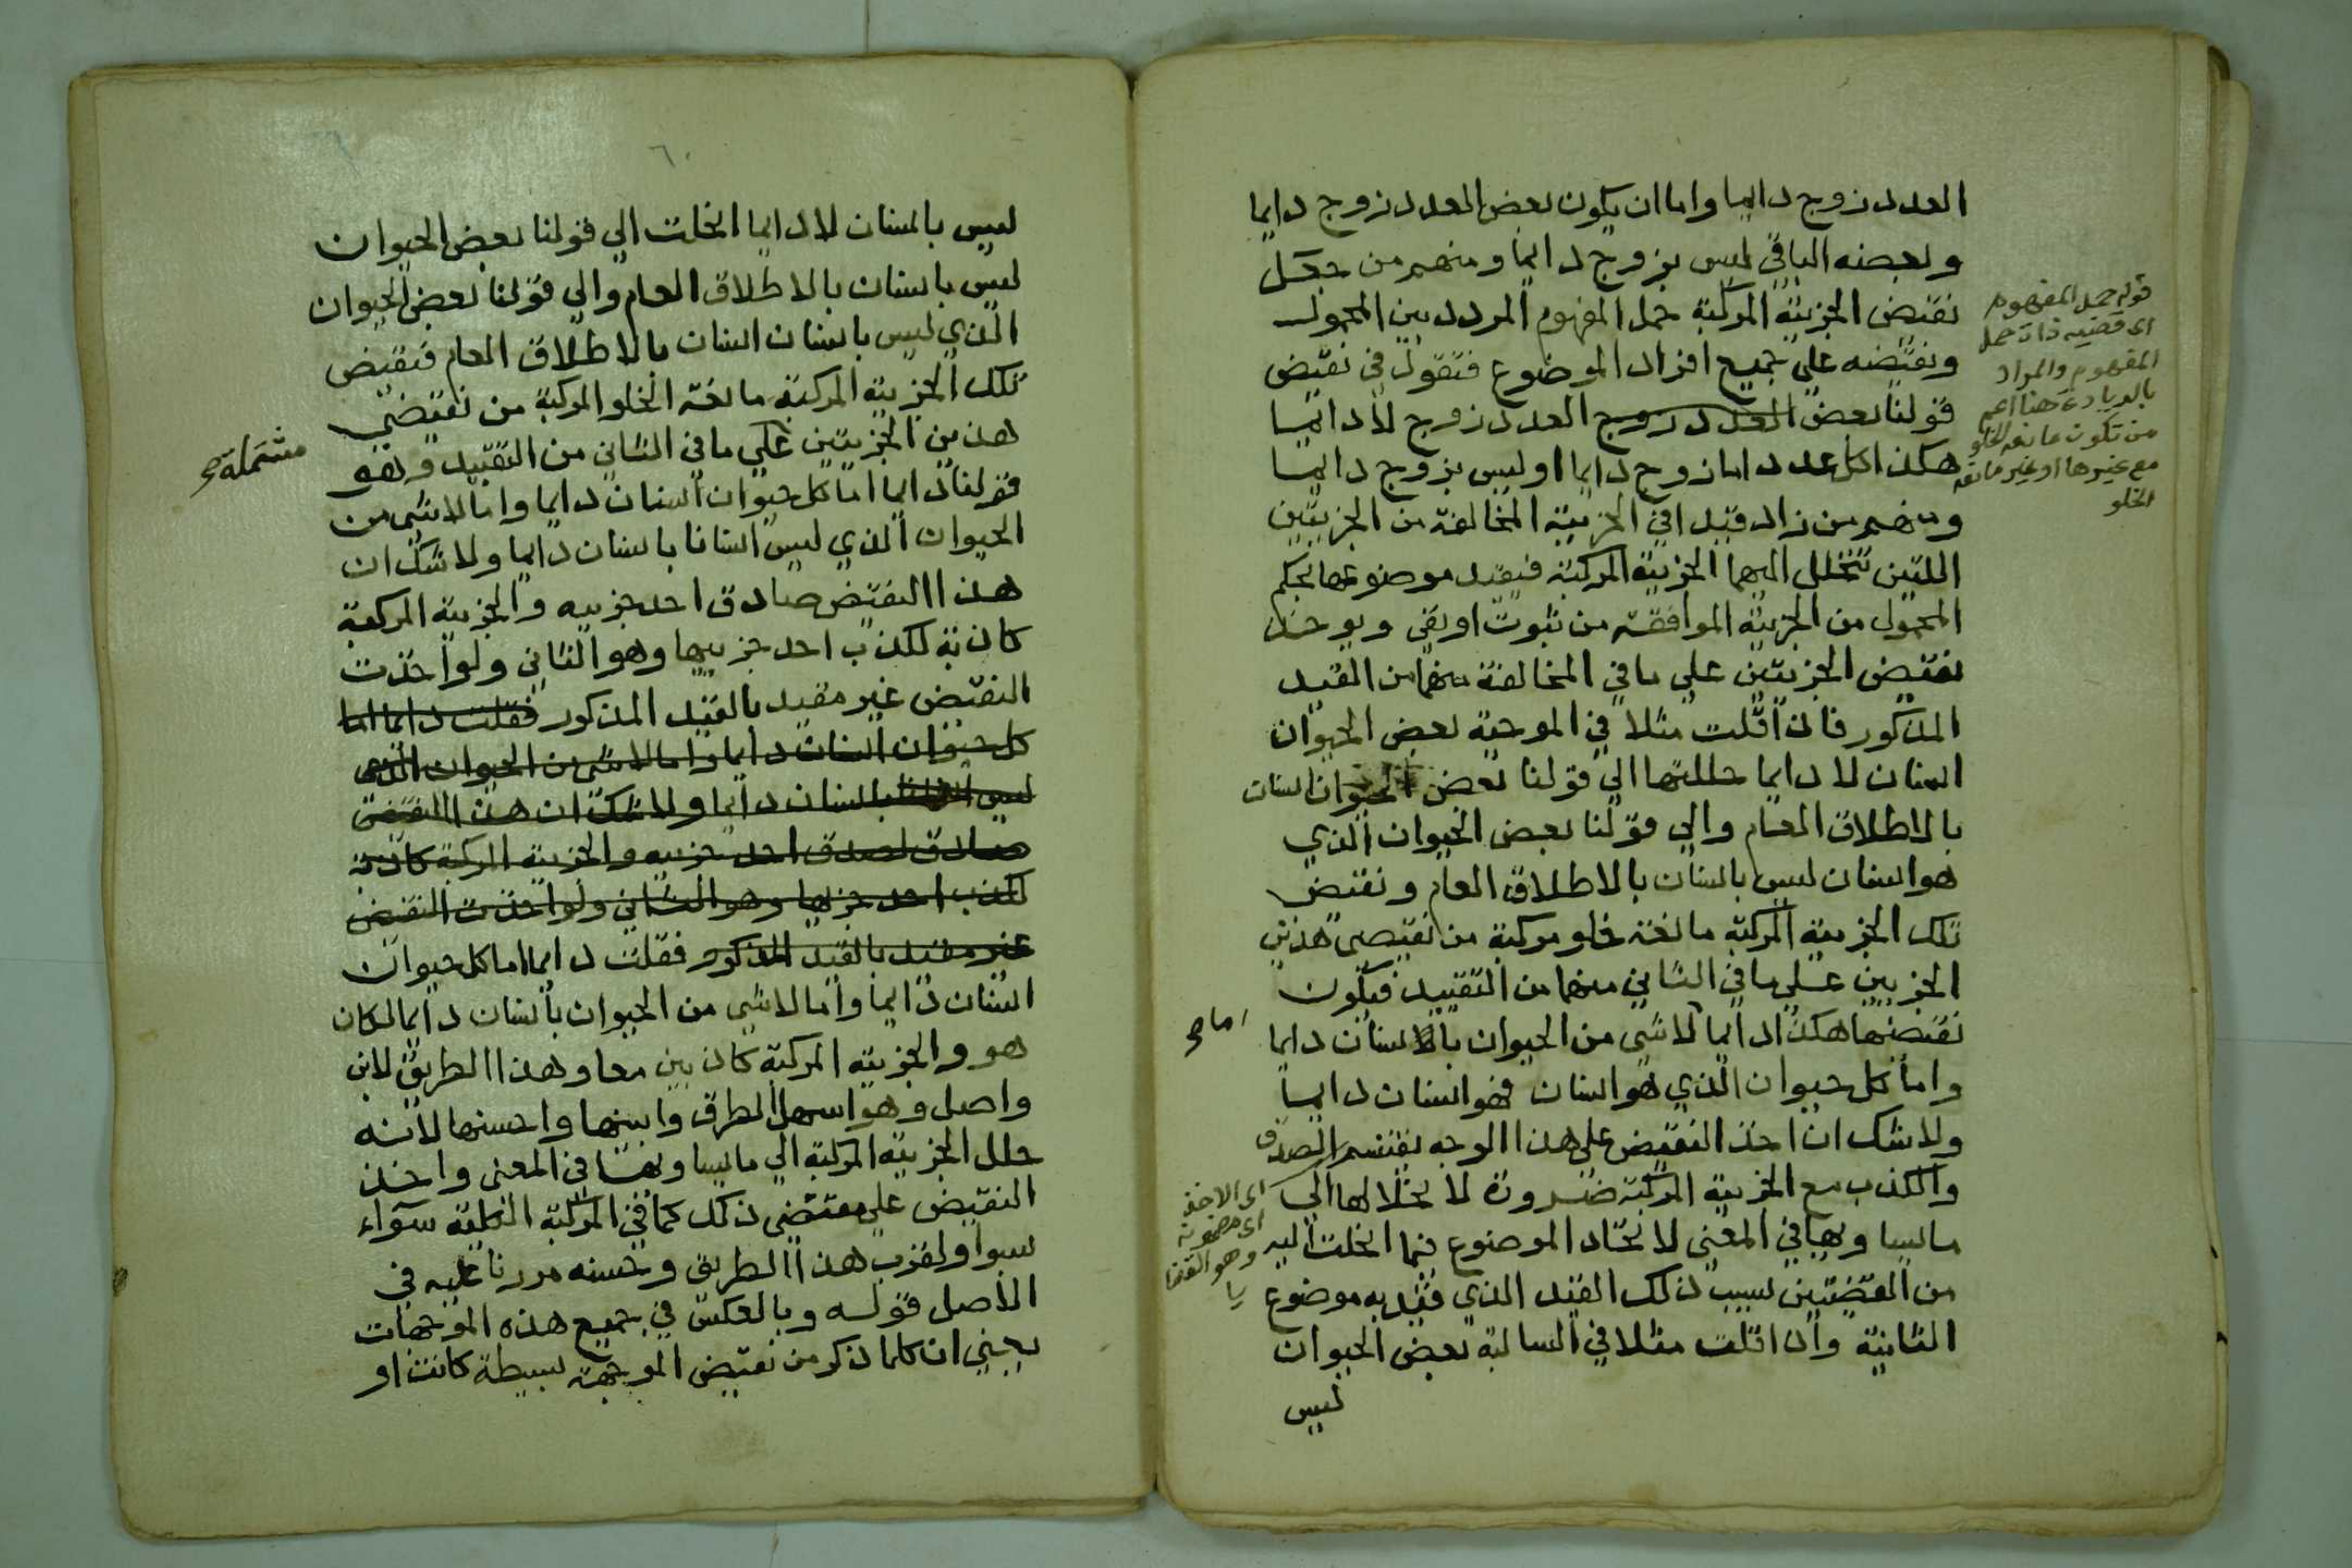 العدد زوج دايما واما ان يكون بعض العدد زوج دايما
وبعضه الباقي ليس بزوج دايما ومنهم من جعل
نقيض الجزيية المركبة حمل المفهوم المردد بين المحمول
ونقيضه على جميع افراد الموضوع فتقول في نقيض
قولنا بعض العدد زوج العدد زوج لا دايما
هكذا كل عدد اما زوج دايما او ليس بزوج دايما
ومنهم من زاد قيدا في الجزيية المخالفة من الجزييتين
اللتين تنحلل اليهما الجزيية المركبة فيقيد موضوعها بحكم
المحمول من الجزيية الموافقة من ثبوت او نفي ويوخذ
نقيض الجزييتين على ما في المخالفة منهما من القيد
المذكور فاذا قلت مثلا في الموجبة بعض الحيوان
انسان لا دايما حللتها الي قولنا بعض الحيوان انسان
بالاطلاق العام والي قولنا بعض الحيوان الذي
هو انسان ليس بانسان بالاطلاق العام ونقيض
تلك الجزيية المركبة مانعة خلو مركبة من نقيضي هذين
الجزيين علي ما في الثاني منهما من التقييد فيكون
نقيضها هكذا دايما لا شي من الحيوان بانسان دايما
واما كل حيوان الذي هو انسان فهو انسان دايما
ولا شك ان اخذ النقيض على هذا الوجه يقتسم الصدق
والكذب مع الجزيية المركبة ضرورة لانحلالها الي
ما يساويها في المعنى لاتحاد الموضوع فيما انحلت اليه
من القضيتين بسبب ذلك القيد الذي قيد به موضوع
الثانية واذا قلت مثلا في السالبة بعض الحيوان
ليس
قوله حمل المفهوم
اى قضيه ذات حمل
المفهوم والمراد
هنا اعم
من تكون مانعة الخلو
مع غيرها او غير مانعة
الخلو
اما صح
اى الاخذ
اى مضمونه
وهو القضا
يا
٦٠
ليس بانسان لا دايما انحلت الي قولنا بعض الحيوان
ليس بانسان بالاطلاق العام والي قولنا بعض الحيوان
الذي ليس بانسان انسان بالاطلاق العام فنقيض
تلك الجزيية المركبة مانعة الخلو المركبة من نقيضي
هذين الجزيتين علي ما في الثاني من التقييد وهو
قولنا دايما اما كل حيوان انسان دايما واما لا شي من
الحيوان الذي ليس انسانا بانسان دايما ولا شك ان
هذا النقيض صادق احد جزييه والجزيية المركبة
كاذبة لكذب احد جزييها وهو الثاني ولو اخذت
النقيض غير مقيد بالقيد المذكور فقلت دايما اما
كل حيوان انسان دايما واما لا شي من الحيوان الذي
ليس انسانا بانسان دايما ولا شك ان هذا النقيض
صادق لصدق احد جزييه والجزيية المركبة كاذبة
لكذب احد جزييها وهو الثاني ولو اخذت النقيض
غير مقيد بالقيد المذكور فقلت دايما اما كل حيوان
انسان دايما واما لا شي من الحيوان بانسان دايما لكان
هو والجزيية المركبة كاذبين معا وهذا الطريق لابن
واصل وهو اسهل الطرق وابينها واحسنها لانه
حلل الجزيية المركبة الي ما يساويها في المعنى واخذ
النقيض على مقتضى ذلك كما في المركبة الكلية سواء
بسوا ولقرب هذا الطريق وحسنه مررنا عليه في
الاصل قوله وبالعكس في جميع هذه الموجهات
يعني ان كلما ذكر من نقيض الموجهة بسيطة كانت او
مشتملة صح